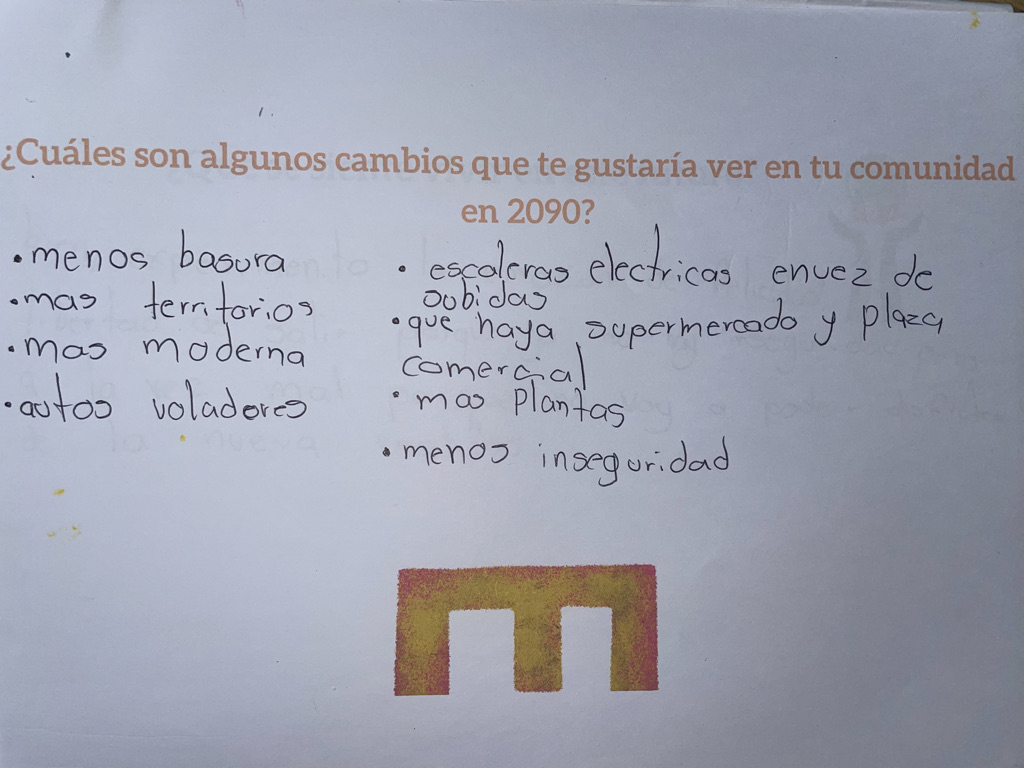 ¿Cuáles son algunos cambios que te gustaría ver en tu comunidad
en 2090?
• menos basura
• mas territorios
• mas moderna
• autos voladores
• escaleras electricas envez de
subidas
• que haya supermercado y plaza
comercial
• mas plantas
• menos inseguridad